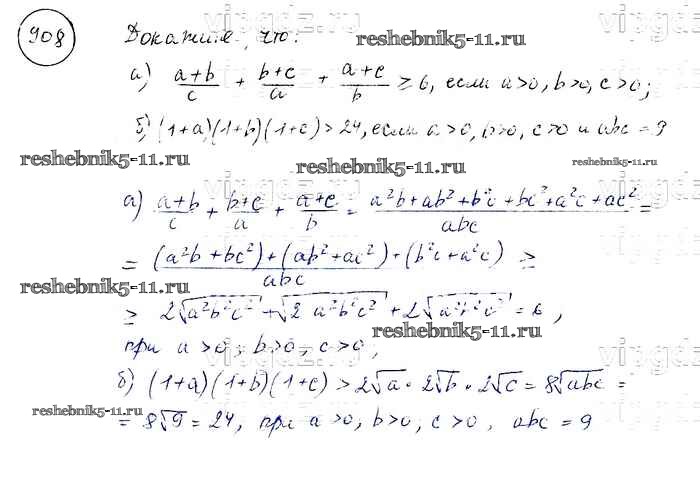 908 Докажите, что:
reshebnik5-11.ru
а) (a+b)/c + (b+c)/a + (a+c)/b ≥ 6, если a>0, b>0, c>0;
б) (1+a)(1+b)(1+c) > 24, если a>0, b>0, c>0 и abc = 9
reshebnik5-11.ru reshebnik5-11.ru
а) (a+b)/c + (b+c)/a + (a+c)/b = (a²b+ab²+b²c+bc²+a²c+ac²)/abc =
reshebnik5-11.ru
= ((a²b+bc²)+(ab²+ac²)+(b²c+a²c))/abc ≥
reshebnik5-11.ru
≥ 2√a²b²c² + √2 a²b²c² + 2√a²b²c² = 6,
reshebnik5-11.ru
при a>0, b>0, c>0;
б) (1+a)(1+b)(1+c) > 2√a · 2√b · 2√c = 8√abc =
reshebnik5-11.ru
= 8√9 = 24, при a>0, b>0, c>0, abc = 9